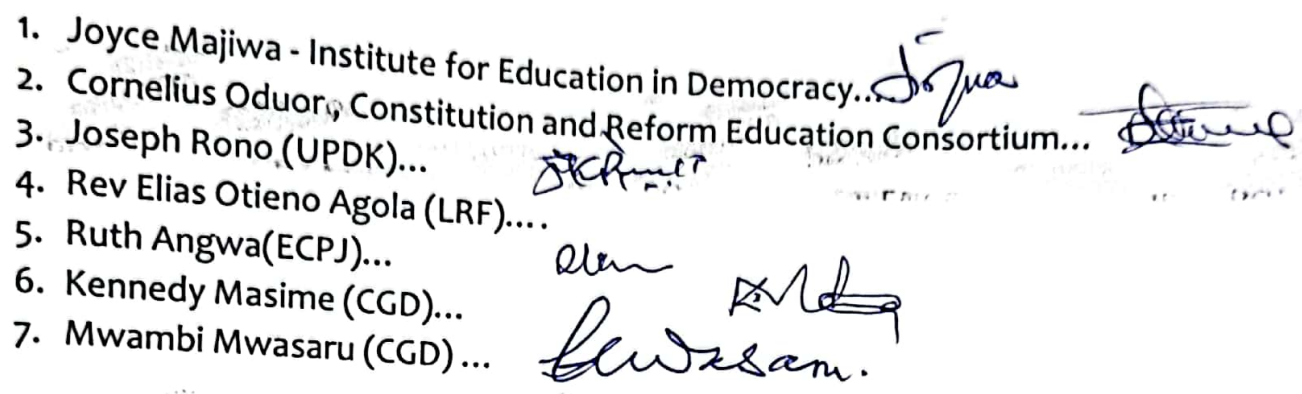 1. Joyce Majiwa - Institute for Education in Democracy...
2. Cornelius Oduor, Constitution and Reform Education Consortium...
3. Joseph Rono (UPDK)...
4. Rev Elias Otieno Agola (LRF)....
5. Ruth Angwa(ECPJ)...
6. Kennedy Masime (CGD)...
7. Mwambi Mwasaru (CGD) ...